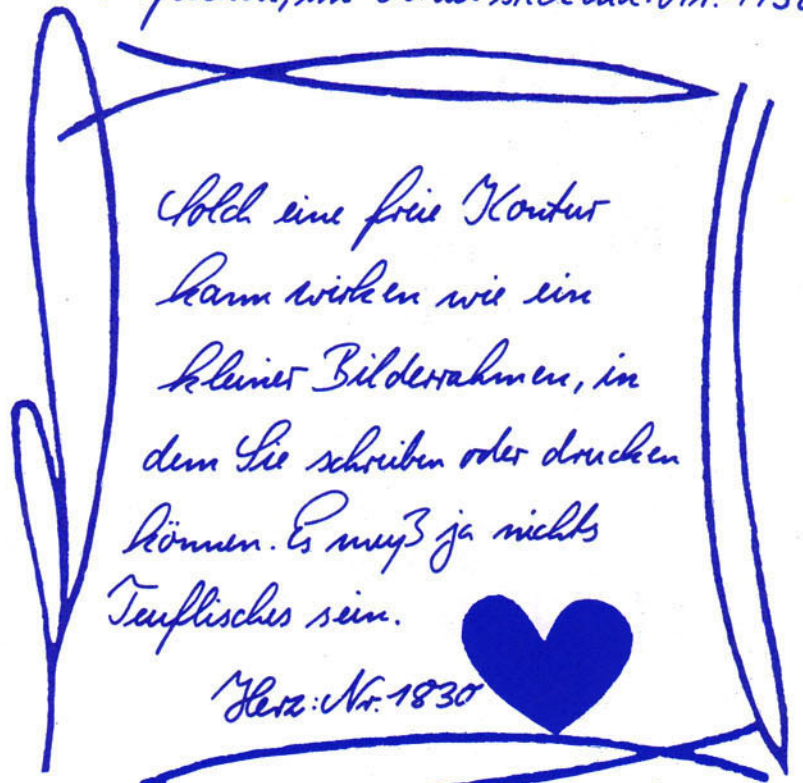 Solch eine freie Kontur
kann wirken wie ein
kleiner Bilderrahmen, in
dem Sie schreiben oder drucken
können. Es muß ja nichts
Teuflisches sein.
Herz: Nr. 1830